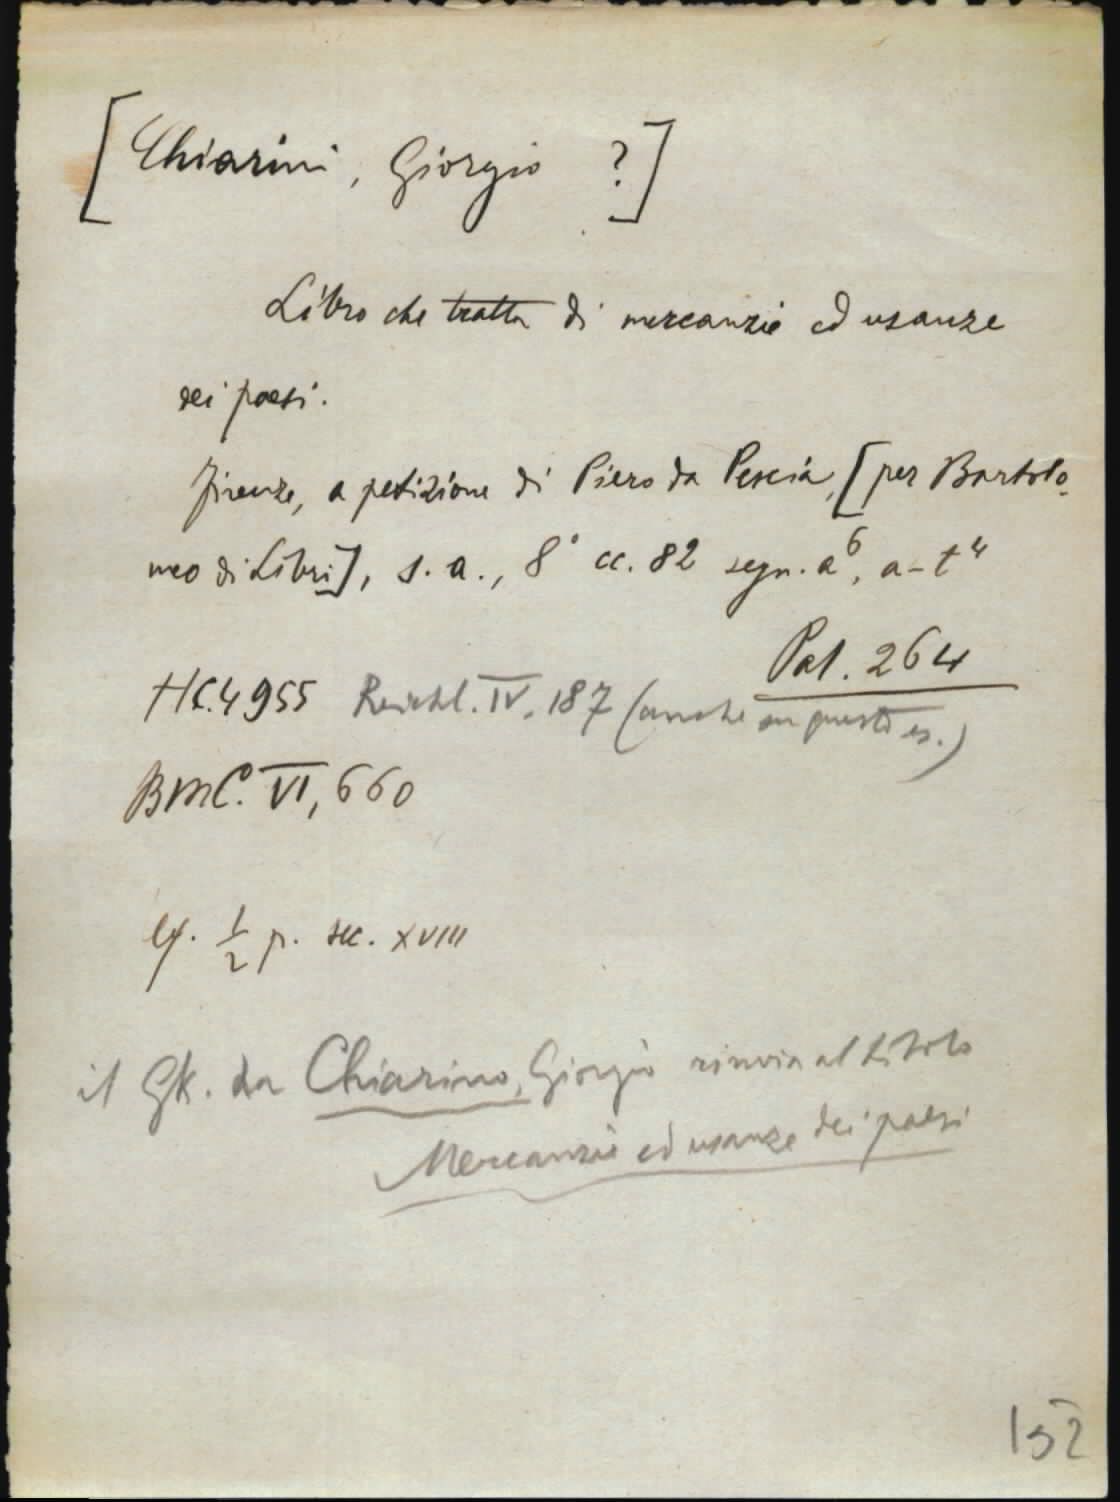 [Chiarini, Giorgio ?]
Libro che tratta di mercanzie ed usanze
dei paesi.
Firenze, a petizione di Piero da Pescia, [per Bartolo-
meo di Libri], s. a., 8° cc. 82 segn. a⁶, a-t⁴
Pal. 264
HC.4955 Reichl. IV. 187 (anche questo es.)
BMC. VI, 660
Leg. 1/2 p. sec. XVIII
il GK. da Chiarino, Giorgio rinvia al titolo
Mercanzie ed usanze dei paesi
152